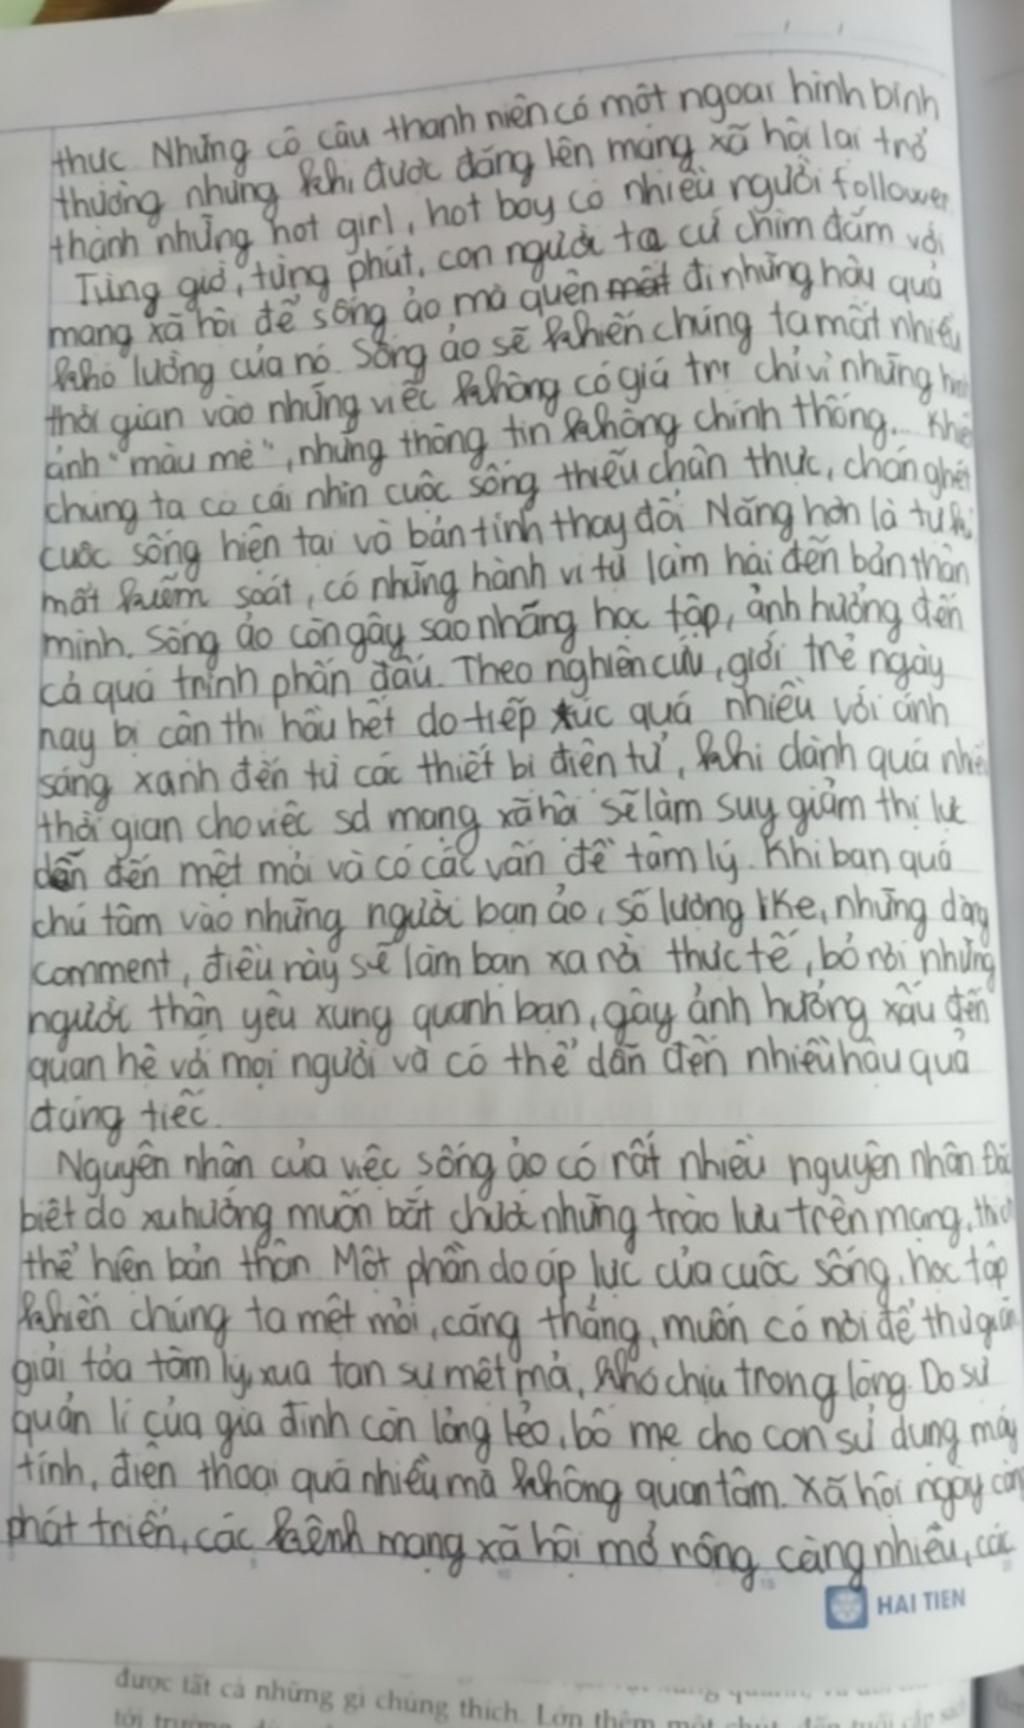 thực. Những cô cậu thanh niên có một ngoại hình bình
thường nhưng khi được đăng lên mạng xã hội lại trở
thành những hot girl, hot boy có nhiều người follower
Từng giờ, từng phút, con người ta cứ chìm đắm với
mạng xã hội để sống ảo mà quên đi những hậu quả
khó lường của nó. Sống ảo sẽ khiến chúng ta mất nhiều
thời gian vào những việc không có giá trị chỉ vì những
ảnh "màu mè", những thông tin không chính thống...
chúng ta có cái nhìn cuộc sống thiếu chân thực, chán ghét
cuộc sống hiện tại và bản tính thay đổi. Nặng hơn là
mất kiểm soát, có những hành vi tự làm hại đến bản thân
mình. Sống ảo còn gây sao nhãng học tập, ảnh hưởng đến
cả quá trình phấn đấu. Theo nghiên cứu, giới trẻ ngày
nay bị cận thị hầu hết do tiếp xúc quá nhiều với ánh
sáng xanh đến từ các thiết bị điện tử, khi dành quá
thời gian cho việc sd mạng xã hội sẽ làm suy giảm thị lực
dẫn đến mệt mỏi và có các vấn đề tâm lý. Khi bạn quá
chú tâm vào những người bạn ảo, số lượng like, những dòng
comment, điều này sẽ làm bạn xa rời thực tế, bỏ rơi những
người thân yêu xung quanh bạn, gây ảnh hưởng xấu đến
quan hệ với mọi người và có thể dẫn đến nhiều hậu quả
đáng tiếc.
Nguyên nhân của việc sống ảo có rất nhiều nguyên nhân.
biệt do xu hướng muốn bắt chước những trào lưu trên mạng,
thể hiện bản thân. Một phần do áp lực của cuộc sống, học tập
khiến chúng ta mệt mỏi, căng thẳng, muốn có nơi để thư giãn
giải tỏa tâm lý, xua tan sự mệt mỏi, khó chịu trong lòng. Do sự
quản lí của gia đình còn lỏng lẻo, bố mẹ cho con sử dụng máy
tính, điện thoại quá nhiều mà không quan tâm. Xã hội ngày càng
phát triển, các kênh mạng xã hội mở rộng càng nhiều, các
HAI TIEN
được tất cả những gì chúng thích. Lớn thêm một chút,